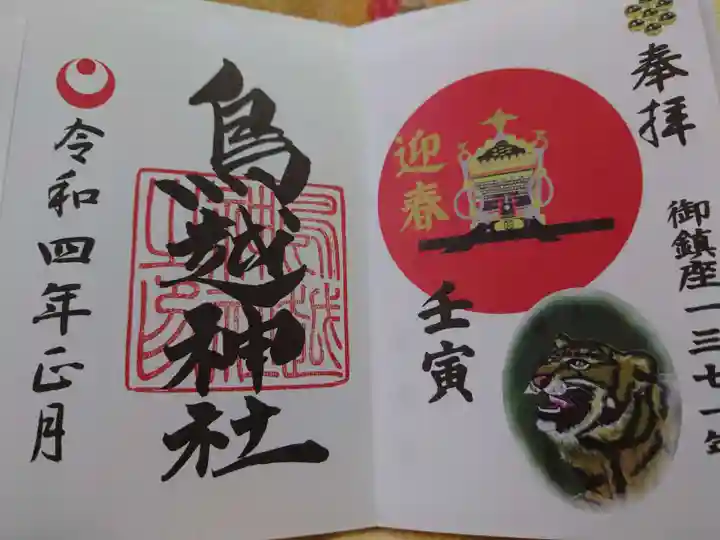 奉拝
御鎮座一三七一年
迎春
壬寅
鳥越神社
令和四年正月